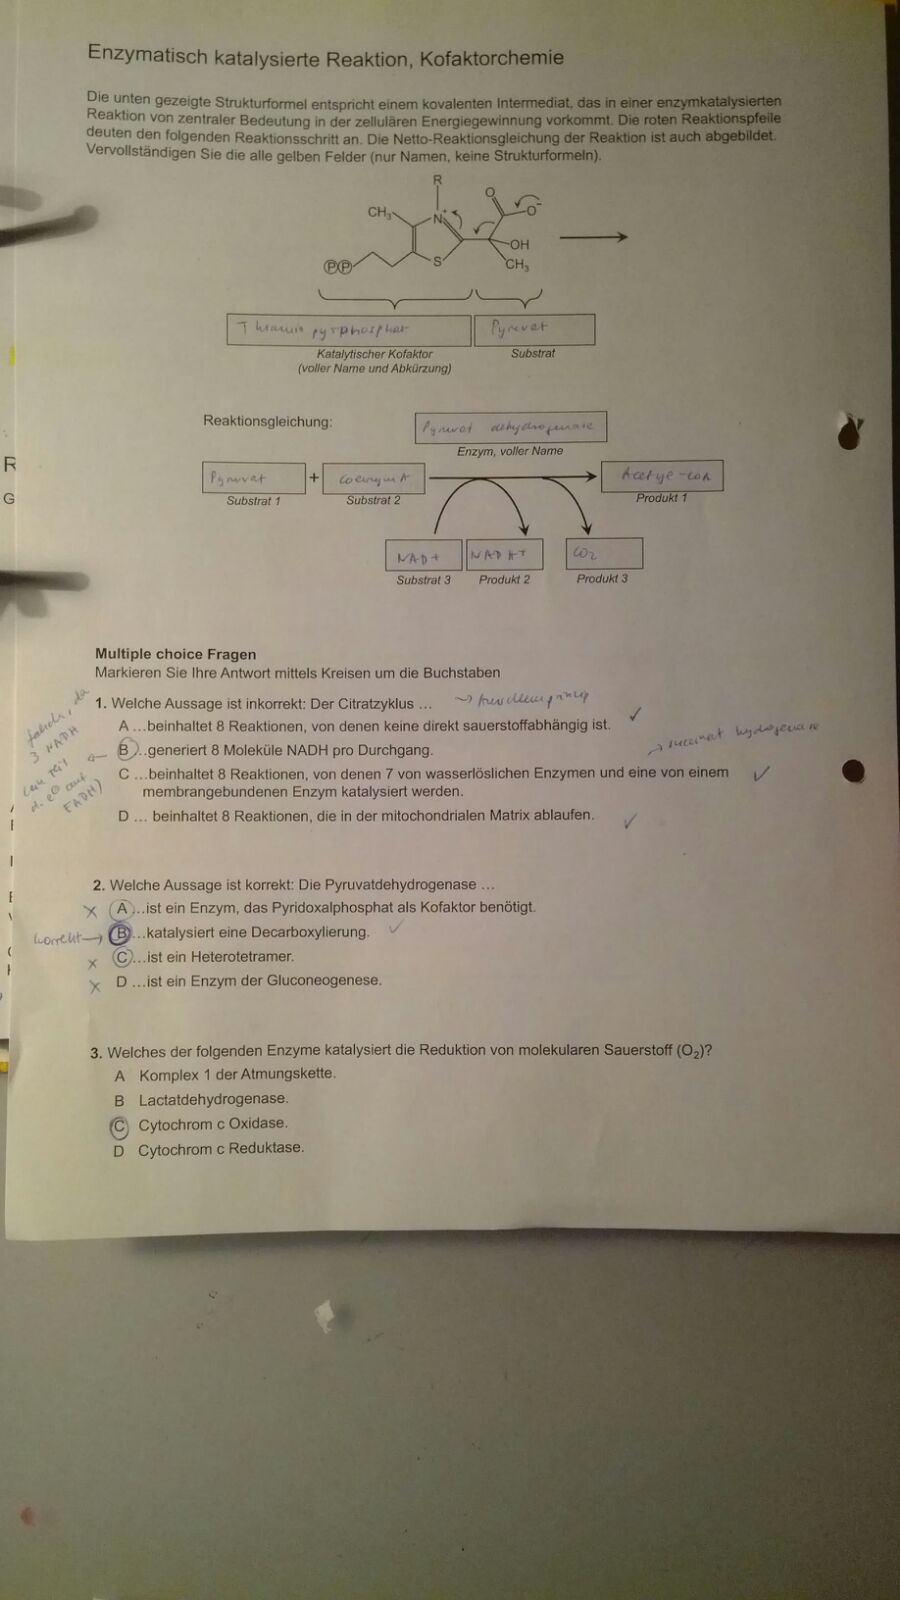 Enzymatisch katalysierte Reaktion, Kofaktorchemie
Die unten gezeigte Strukturformel entspricht einem kovalenten Intermediat, das in einer enzymkatalysierten
Reaktion von zentraler Bedeutung in der zellulären Energiegewinnung vorkommt. Die roten Reaktionspfeile
deuten den folgenden Reaktionsschritt an. Die Netto-Reaktionsgleichung der Reaktion ist auch abgebildet.
Vervollständigen Sie die alle gelben Felder (nur Namen, keine Strukturformeln).
R
CH3 N+ O O-
OH
PP S CH3
Pyruvat
Katalytischer Kofaktor Substrat
(voller Name und Abkürzung)
Reaktionsgleichung:
Pyruvat dehydrogenase
Enzym, voller Name
Pyruvat + Coenzym A Acetyl-CoA
Substrat 1 Substrat 2 Produkt 1
NAD+ NADH+ CO2
Substrat 3 Produkt 2 Produkt 3
Multiple choice Fragen
Markieren Sie Ihre Antwort mittels Kreisen um die Buchstaben
1. Welche Aussage ist inkorrekt: Der Citratzyklus ...
A ...beinhaltet 8 Reaktionen, von denen keine direkt sauerstoffabhängig ist.
falsch, da
3 NADH
FADH)
B ...generiert 8 Moleküle NADH pro Durchgang.
C ...beinhaltet 8 Reaktionen, von denen 7 von wasserlöslichen Enzymen und eine von einem
membrangebundenen Enzym katalysiert werden.
D ... beinhaltet 8 Reaktionen, die in der mitochondrialen Matrix ablaufen.
2. Welche Aussage ist korrekt: Die Pyruvatdehydrogenase ...
x A ...ist ein Enzym, das Pyridoxalphosphat als Kofaktor benötigt.
korrekt → B ...katalysiert eine Decarboxylierung.
x C ...ist ein Heterotetramer.
x D ...ist ein Enzym der Gluconeogenese.
3. Welches der folgenden Enzyme katalysiert die Reduktion von molekularen Sauerstoff (O2)?
A Komplex 1 der Atmungskette.
B Lactatdehydrogenase.
C Cytochrom c Oxidase.
D Cytochrom c Reduktase.
R
G